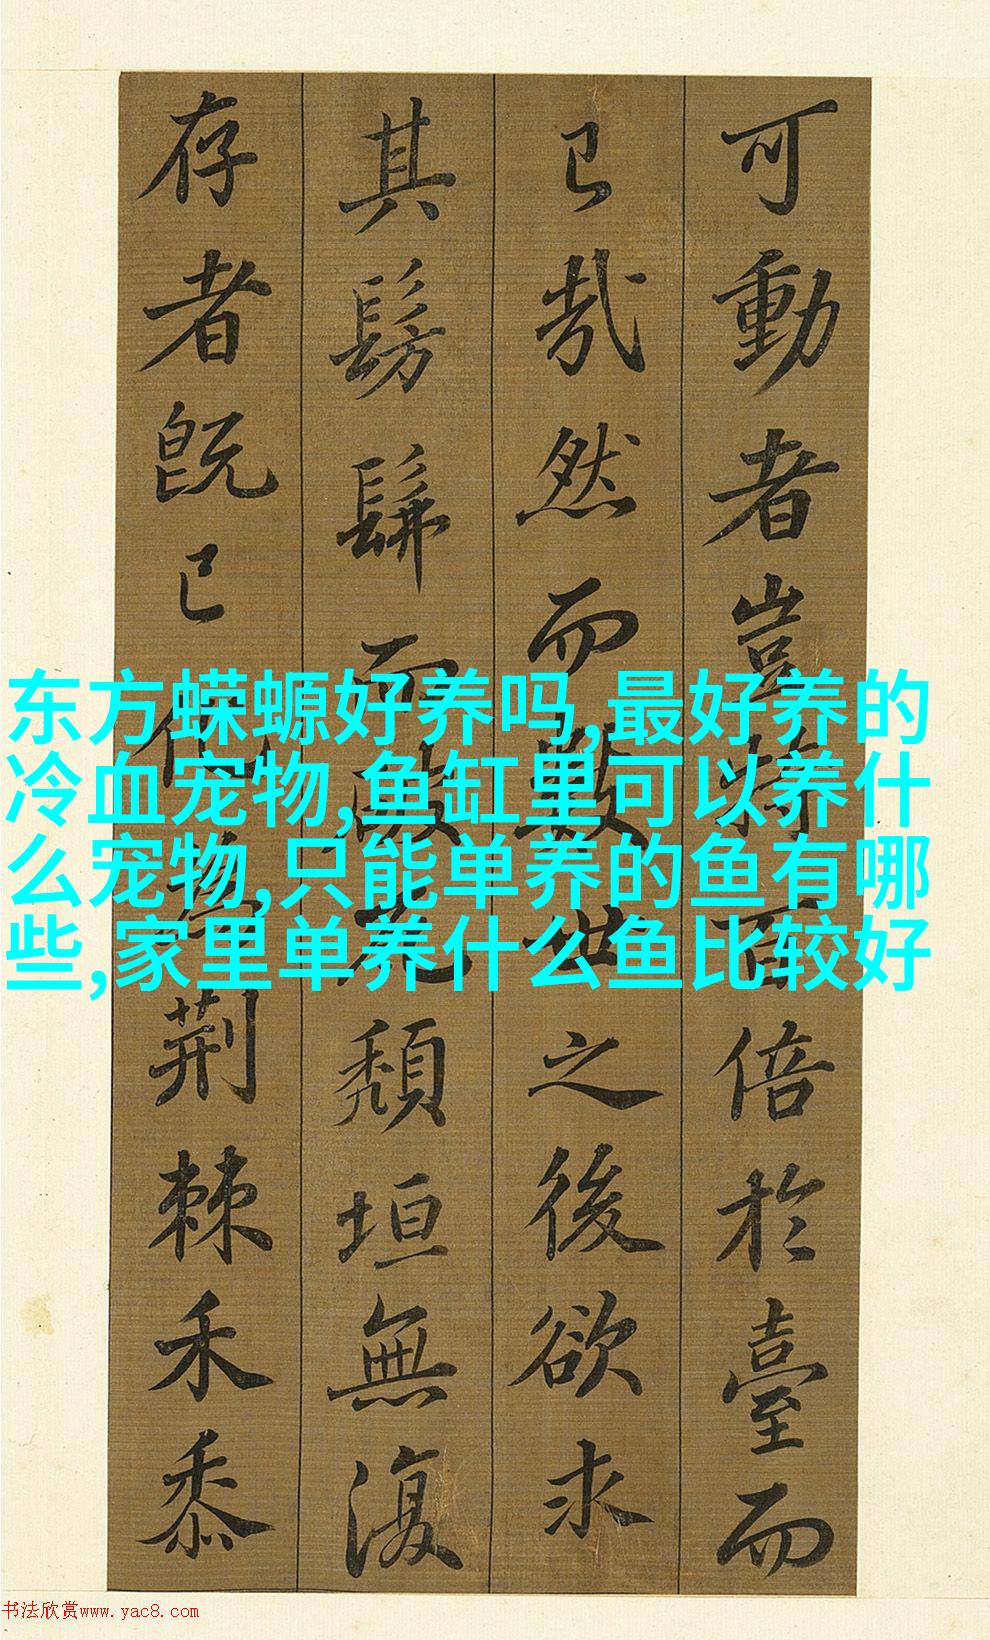 可動者豈特百倍於臺而
已哉然而數世之後欲求
其髣髴而破瓦頹垣無復
存者既已化為荆棘禾黍
东方蝾螈好养吗,最好养的
冷血宠物,鱼缸里可以养什
么宠物,只能单养的鱼有哪
些,家里单养什么鱼比较好
书法欣赏www.yac8.com